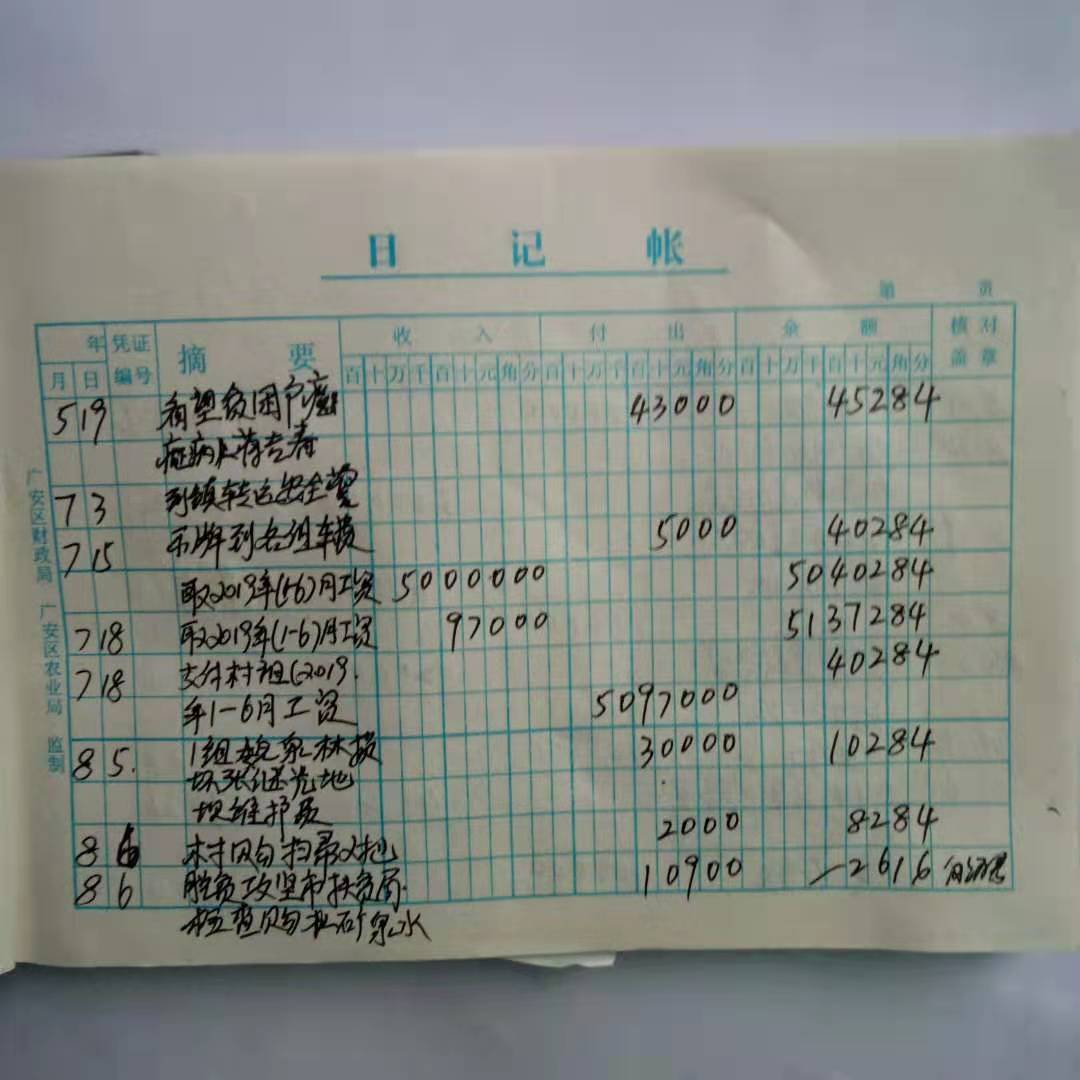 日记帐
第 页
年 凭证编号 摘要 收入 付出 余额 核对盖章
月 日 百十万千百十元角分 百十万千百十元角分 百十万千百十元角分
5 19 看望贫困户癌 43000 45284
症病人蒋
7 3 到镇转运安全
7 15 吊牌到各组车费 5000 40284
取2019年(1-6)月工资 5000000 5040284
7 18 取2019年(1-6)月工资 97000 5137284
7 18 支付村组(2019. 40284
年1-6月工资 5097000
8 5. 1组 林损 30000 10284
坏张 地
坝维护费
8 6 村购扫帚2把 2000 8284
8 6 脱贫攻坚市扶贫局. 10900 -2616
检查购 矿泉水
广安区财政局 广安区农业局 监制